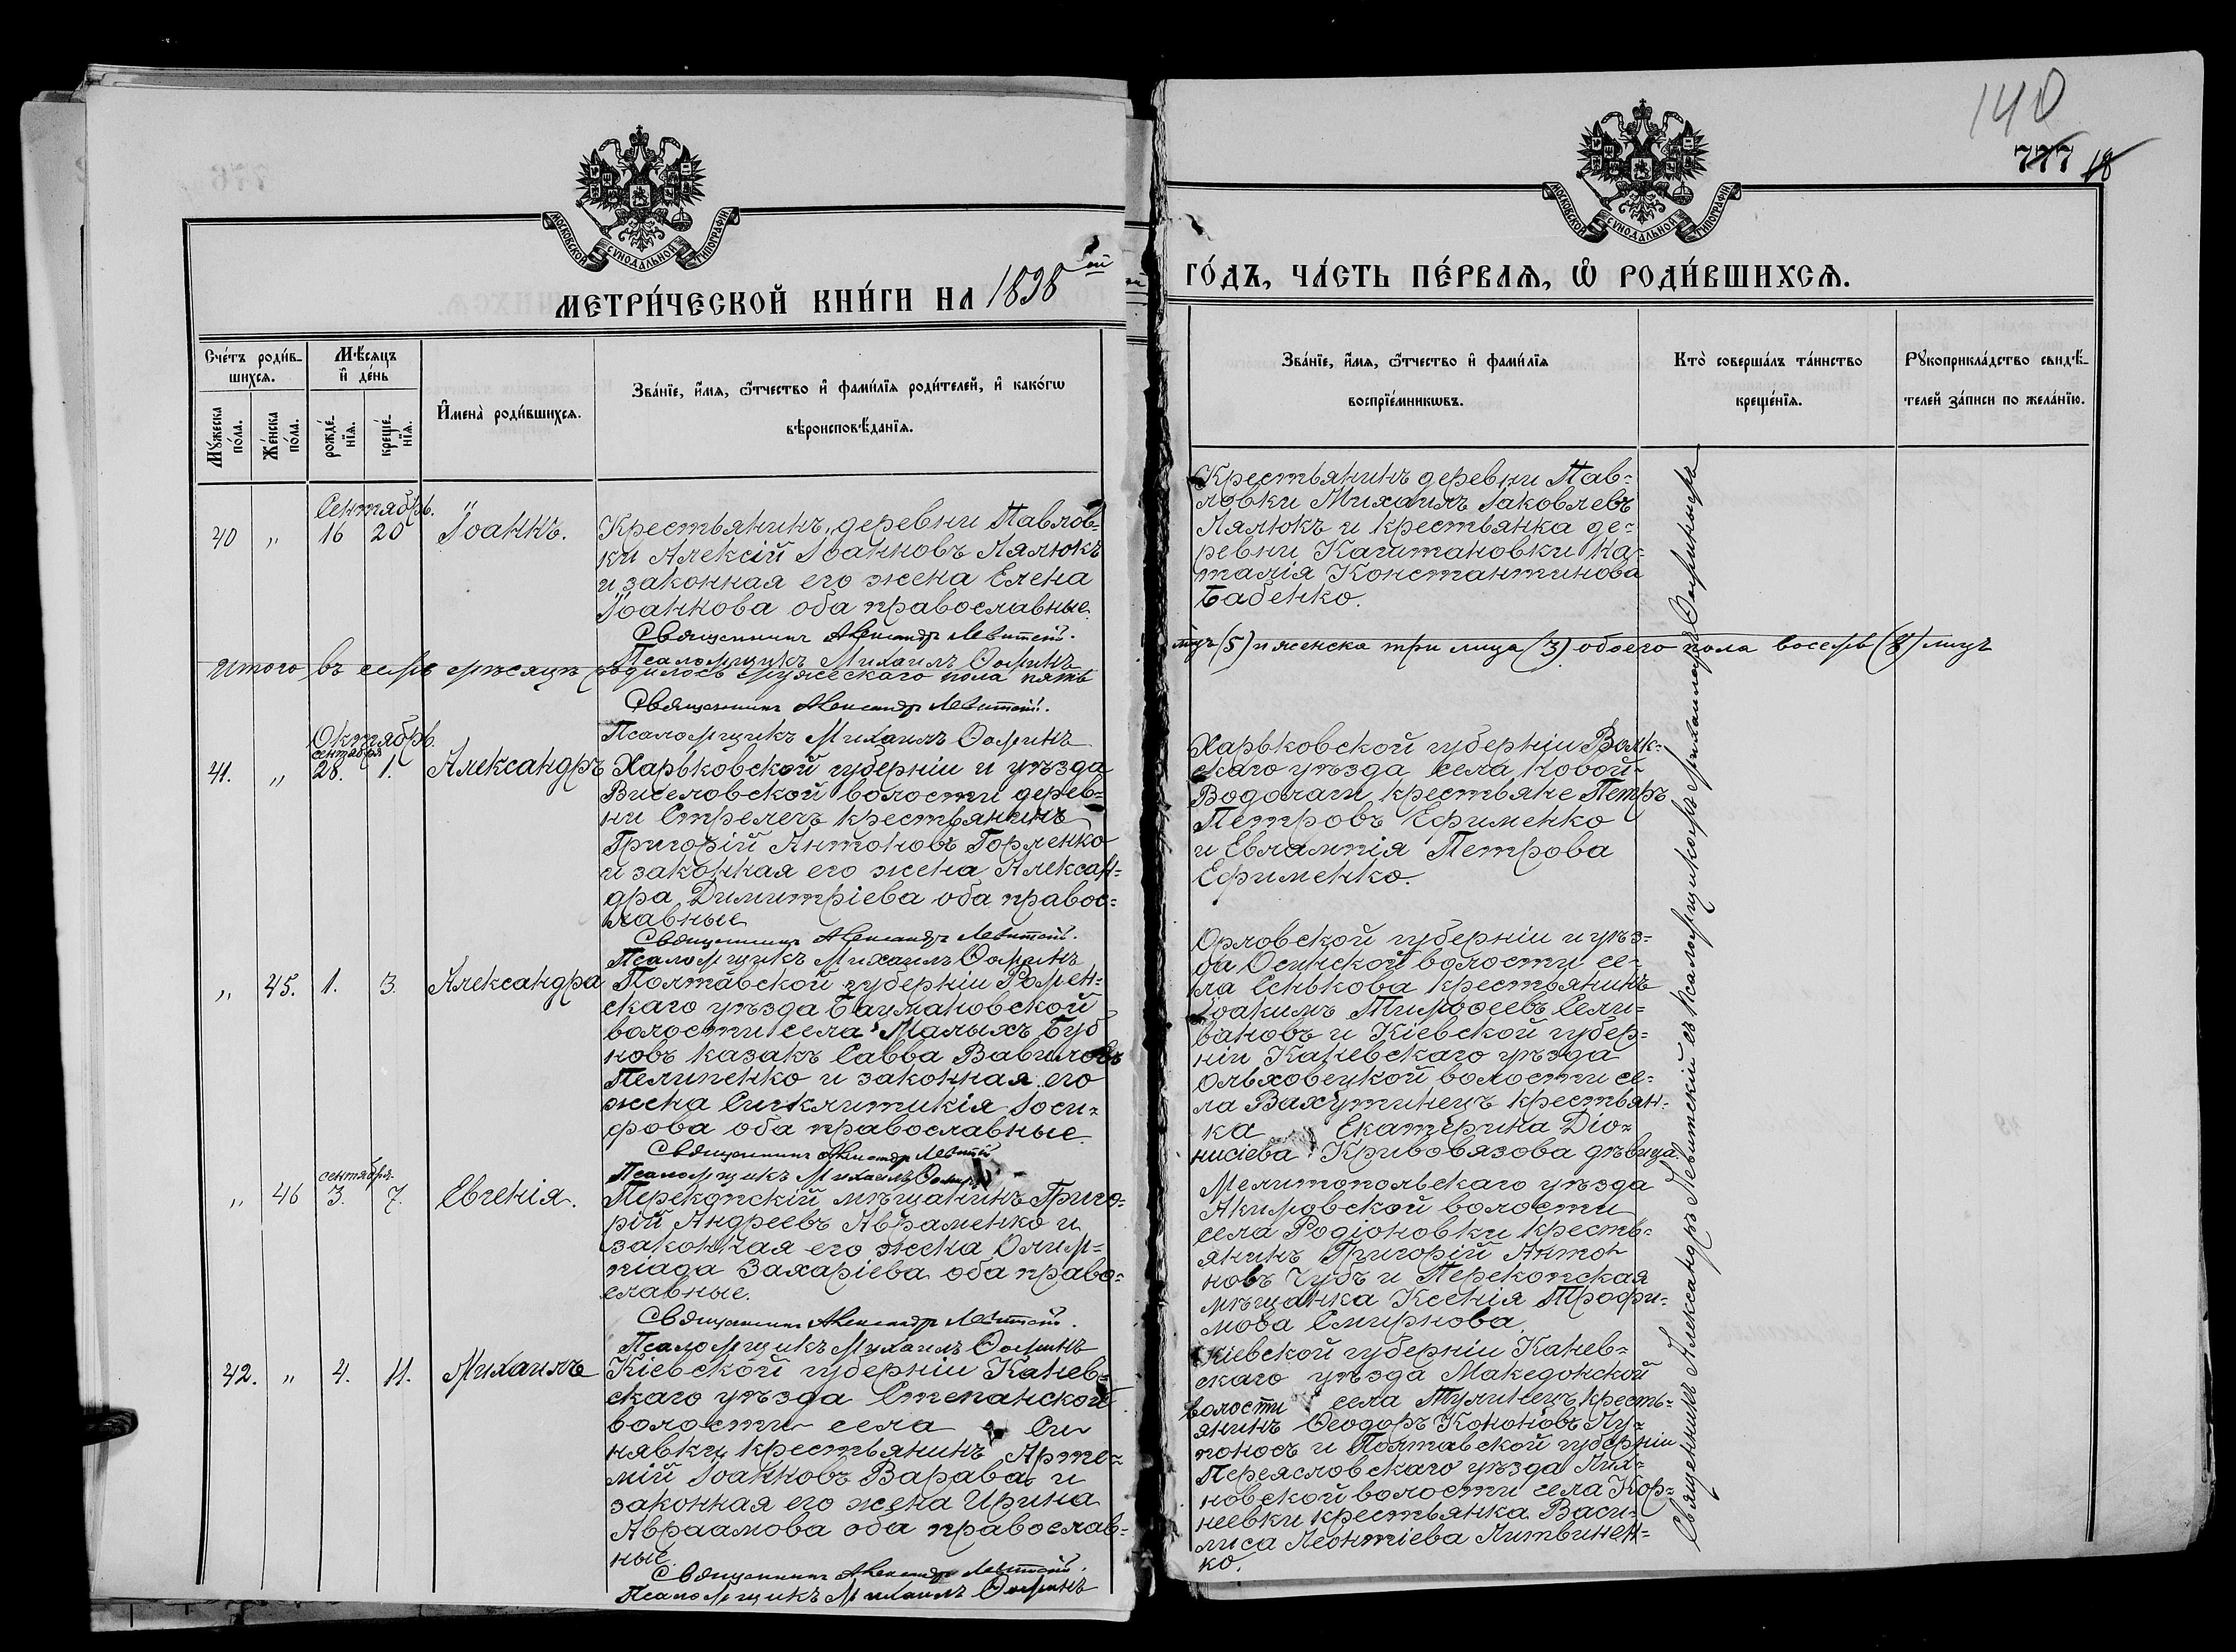 140
777 18
МОСКОВСКОЙ СѴНОДАЛЬНОЙ ТИПОГРАФІИ
МОСКОВСКОЙ СѴНОДАЛЬНОЙ ТИПОГРАФІИ
МЕТРИ́ЧЕСКОЙ КНИ́ГИ НА 1898ой
ГО́ДЪ, ЧА́СТЬ ПЕ́РВАЯ, Ѽ РОДИ́ВШИХСЯ.
Сче́тъ роди́в-
шихся.
Мꙋ́жеска
по́ла.
Же́нска
по́ла.
Мѣ́сяцъ
и҆ де́нь
рожде́-
нїя.
креще́-
нїя.
И҆мена̀ роди́вшихся.
Зва́нїе, и҆́мя, ѻ҆́тчество и҆ фами́лїя роди́телей, и҆ како́гѡ
вѣроисповѣ́данїя.
Зва́нїе, и҆́мя, ѻ҆́тчество и҆ фами́лїя
воспрїе́мникѡвъ.
Кто̀ соверша́лъ та́инство
креще́нїя.
Рꙋкоприкла́дство свидѣ́-
телей за́писи по жела́нїю.
Сентябрь.
40 „ 16 20 Іоаннъ.
Крестьянинъ деревни Павлов-
ки Алексій Іоанновъ Лялюкъ
и законная его жена Елена
Іоаннова оба православные.
Священникъ Александръ Левитскій.
Псаломщикъ Михаилъ Ѳоминъ
Крестьянинъ деревни Пав-
ловки Михаилъ Іаковлевъ
Лялюкъ и крестьянка де-
ревни Капитановки На-
талія Константинова
Бабенко.
Итого въ семъ мѣсяцѣ родилось мужескаго пола пять
лицъ (5) и женска три лица (3) обоего пола восемь (8) лицъ
Священникъ Александръ Левитскій.
Псаломщикъ Михаилъ Ѳоминъ
Октябрь.
сентября
41. „ 28. 1. Александръ
Харьковской губерніи и уѣзда
Веселовской волости дерев-
ни Стрелечъ крестьянинъ
Григорій Антоновъ Горленко
и законная его жена Алексан-
дра Димитріева оба правос-
лавные
Священникъ Александръ Левитскій.
Псаломщикъ Михаилъ Ѳоминъ
Харьковской губерніи Волк-
скаго уѣзда села Новой-
Водолаги крестьяне Петръ
Петровъ Ефименко
и Евлампія Петрова
Ефименко.
„ 45. 1. 3. Александра
Полтавской губерніи Ромен-
скаго уѣзда
волости села Малыхъ Буб
новъ казакъ Савва Вавиловъ
Пелипенко и законная его
жена Синклитикія Іоси-
фова оба православные
Священникъ Александръ Левитскій
Псаломщикъ Михаилъ Ѳоминъ
Орловской губерніи и уѣз-
да волости се-
ла Сенькова крестьянинъ
Іоакимъ Тимоѳеевъ Сели-
вановъ и Кіевской губер-
ніи Каневскаго уѣзда
Ольховецкой волости се-
ла Вахутинецъ крестьян-
ка Екатерина Діо-
нисіева Кривовязова дѣвица.
сентября.
„ 46 3. 7. Евгенія.
Перекопскій мѣщанинъ Григо-
рій Андреевъ Авраменко и
законная его жена Олим-
піада Захаріева оба право-
славные.
Священникъ Александръ Левитскій.
Псаломщикъ Михаилъ Ѳоминъ
Мелитопольскаго уѣзда
Акимовской волости
села Родіоновки кресть-
янинъ Григорій Анто
новъ Чубъ и Перекопская
мѣщанка Ксенія Трофи-
мова Смирнова.
42. „ 4. 11. Михаилъ
Кіевской губерніи Канев-
скаго уѣзда Степанской
волости села Си
нявки крестьянинъ Арте-
мій Іоанновъ Варава и
законная его жена Ирина
Авраамова оба православ-
ные.
Священникъ Александръ Левитскій.
Псаломщикъ Михаилъ Ѳоминъ
Кіевской губерніи Канев-
скаго уѣзда Македонской
волости села Тулинецъ кресть-
янинъ Ѳеодоръ Кононовъ Лу-
поносъ и Полтавской губерніи
Переясловскаго уѣзда
новской волости села Кор-
неевки крестьянка Васи-
лиса Леонтіева Литвинен-
ко.
Священникъ Александръ Левитскій съ псаломщикомъ Михаиломъ Ѳоминымъ